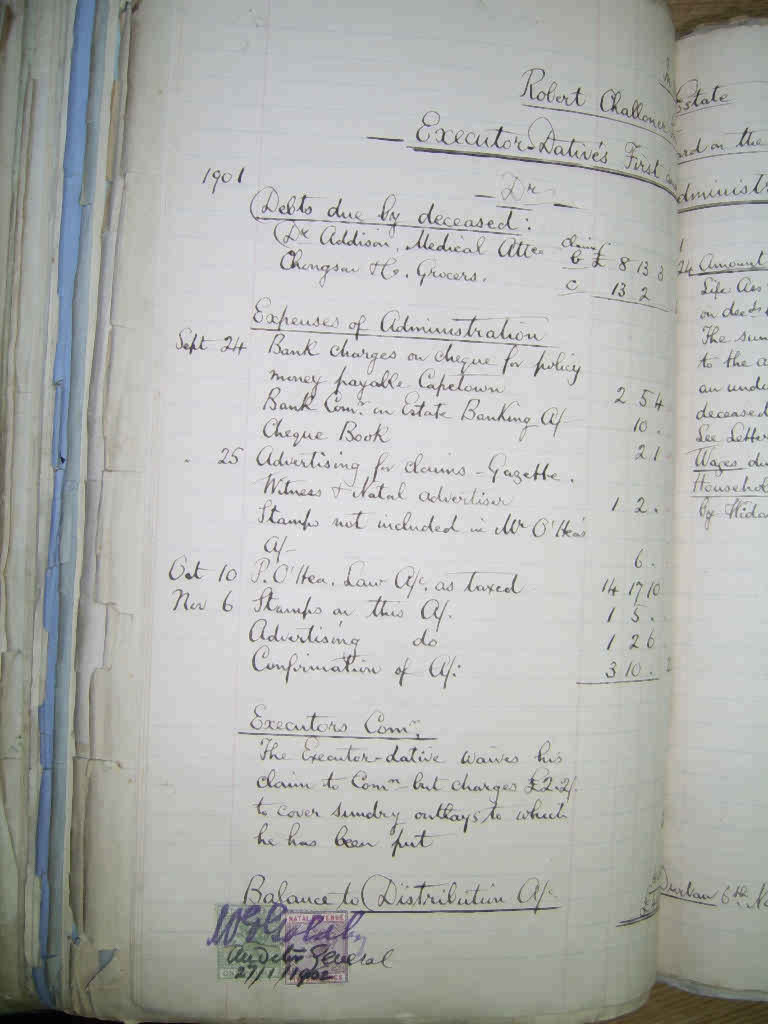 Robert Challoner
Executor-Dative's First
1901
Dr
Debts due by deceased:
Dr Addison, Medical Attce claim B £ 8 13 3
Chongson & Co. Grocers. C 13 2
Expenses of Administration
Sept 24 Bank charges on cheque for policy
money payable Capetown 2 5 4
Bank Comn. on Estate Banking A/c 10 .
Cheque Book 2 1
" 25 Advertising for claims - Gazette,
Witness & Natal advertiser 1 2 .
Stamps not included in Mr O'Hea's
A/c 6 .
Oct 10 P. O'Hea, Law A/c, as taxed 14 17 10
Nov 6 Stamps on this A/c. 1 5 .
Advertising do 1 2 6
Confirmation of A/c: 3 10 .
Executors Comn.
The Executor-dative waives his
claim to Comn but charges £2.2/.
to cover sundry outlays to which
he has been put
Balance to Distribution A/c
NATAL REVENUE
Auditor General
27/1/1902
Estate
on the
Amount
Life Ass
on
The sum
to the
an
deceased
See Letter
Wages
Household
by
Durban 6th